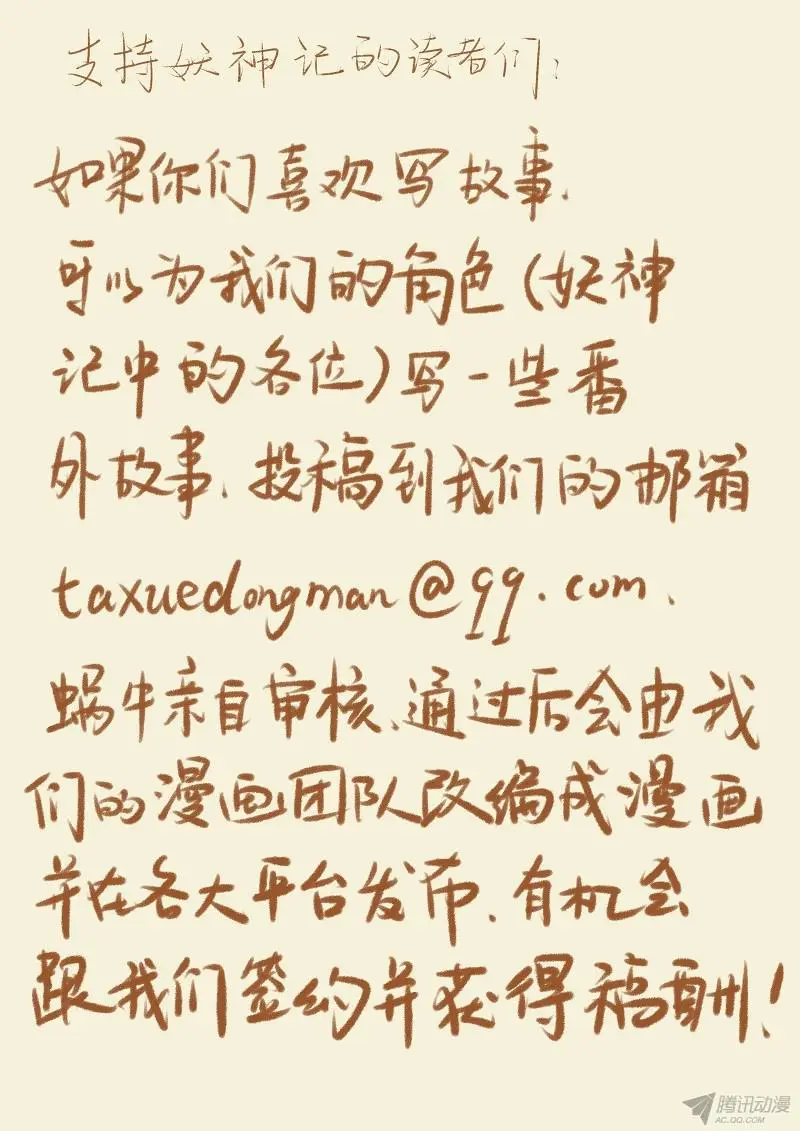 支持妖神记的读者们:
如果你们喜欢写故事.
可以为我们的角色(妖神
记中的各位)写一些番
外故事.投稿到我们的邮箱
taxuedongman@qq.com.
蜗牛亲自审核.通过后会由我
们的漫画团队改编成漫画
并在各大平台发布.有机会
跟我们签约并获得稿酬!
腾讯动漫
AC.QQ.COM